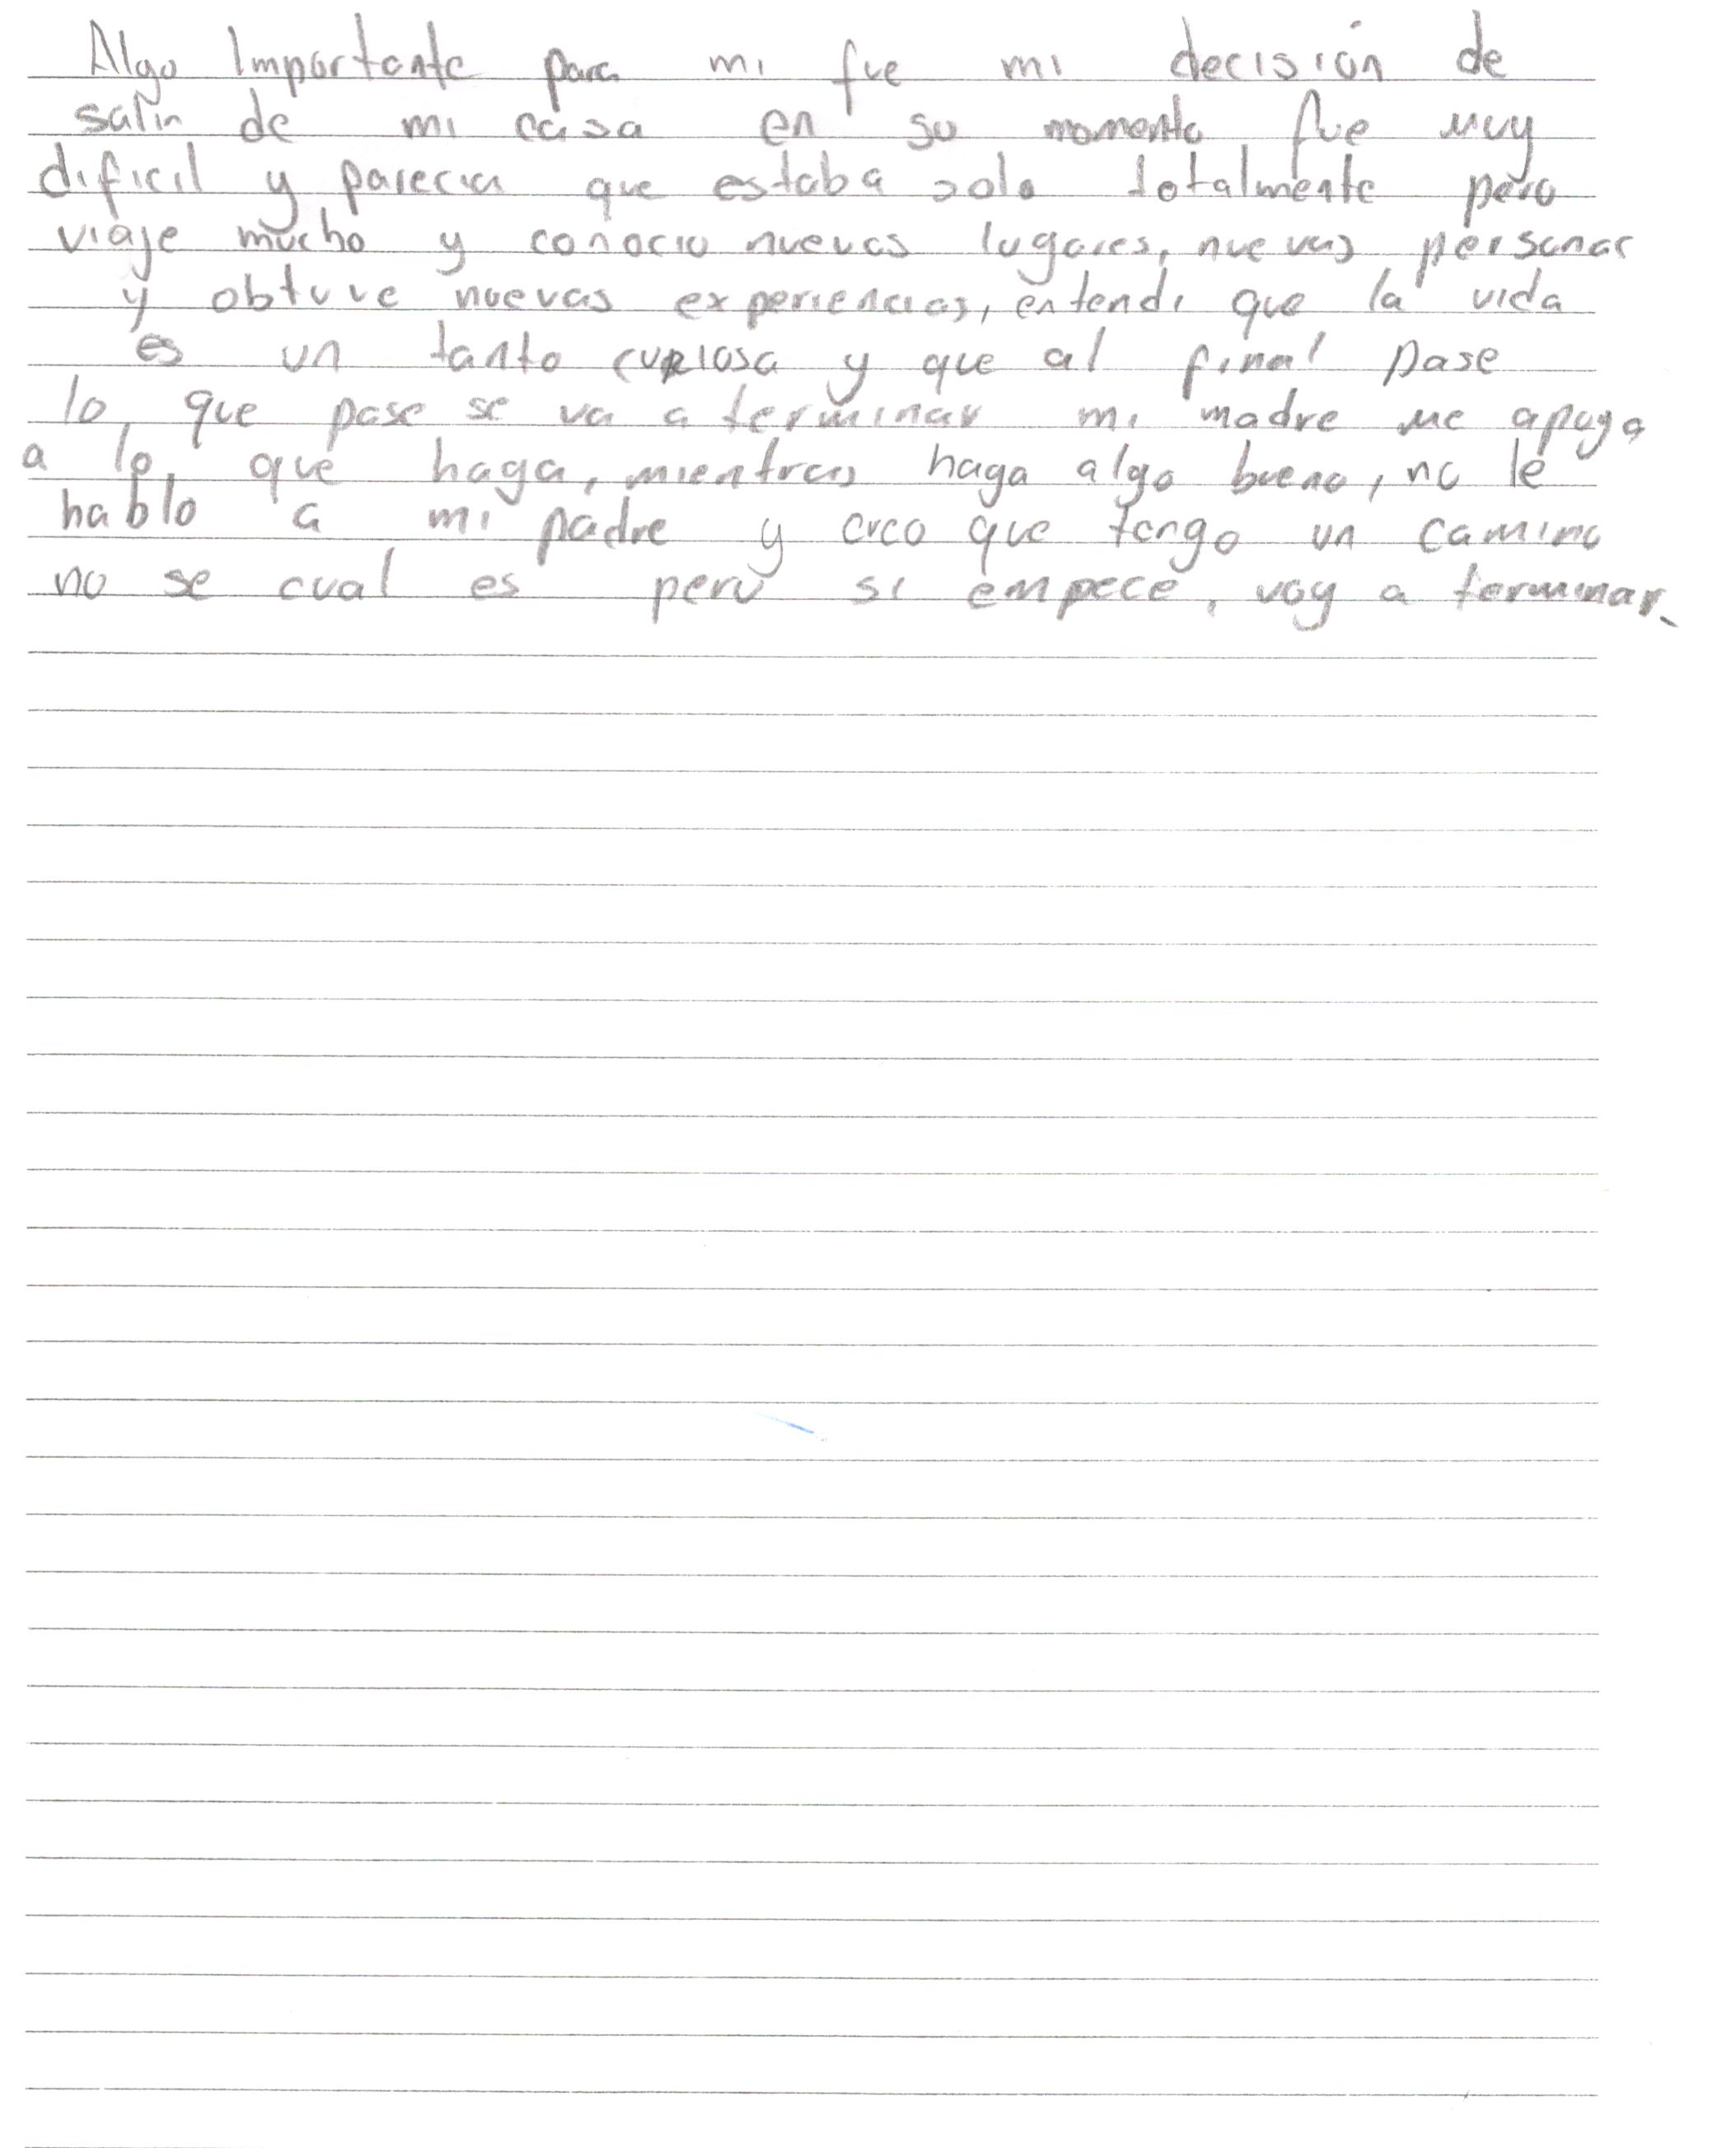 Algo Importante para mi fue mi decisión de
salir de mi casa en su momento fue muy
dificil y parecia que estaba solo totalmente pero
viaje mucho y conocio nuevos lugares, nuevas personas
y obtuve nuevas experiencias, entendi que la vida
es un tanto curiosa y que al final pase
lo que pase se va a terminar mi madre me apoya
a lo que haga, mientras haga algo bueno, no le
hablo a mi padre y creo que tengo un camino
no se cual es pero si empece, voy a terminar.